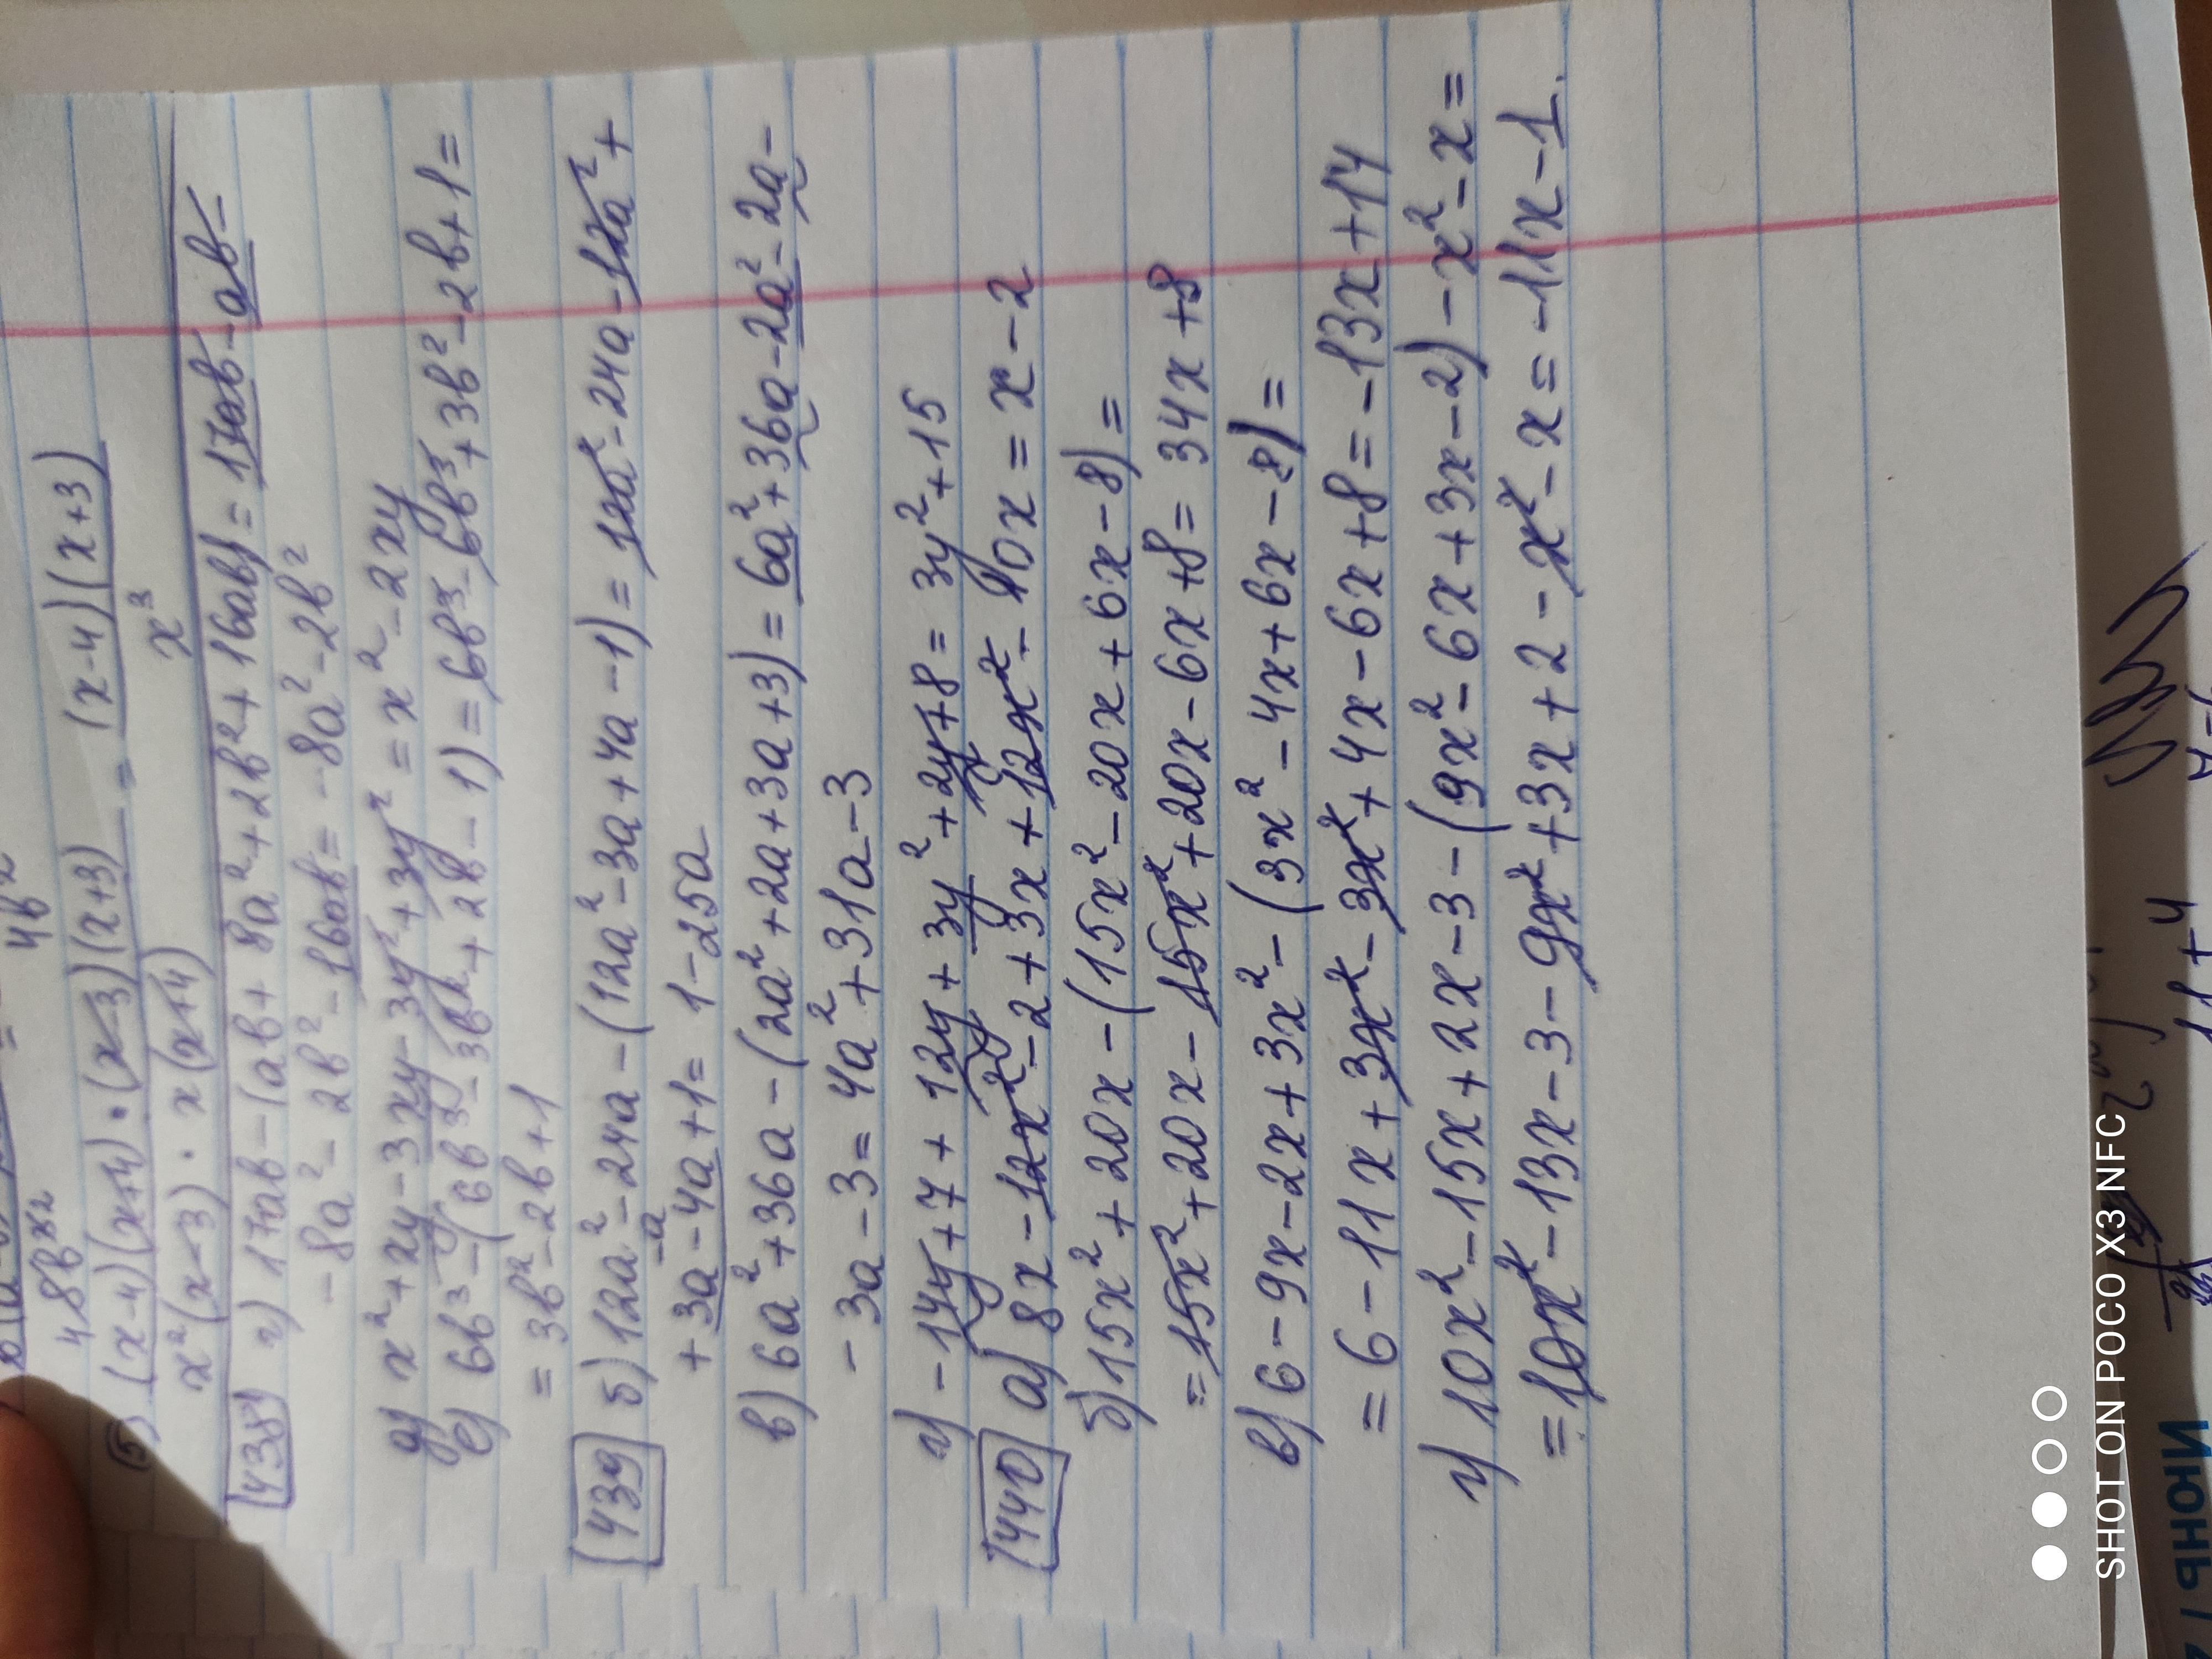 4b²
48b²
5) (x-4)(x+4)·(x-3)(x+3) = (x-4)(x+3)
x²(x-3) · x(x+4) x³
438 г) 17ab-(ab+8a²+2b²+16ab) = 17ab-ab-
-8a²-2b²-16ab = -8a²-2b²
д) x²+xy-3xy-3y²+3y² = x²-2xy
е) 6b³-(6b³-3b²+2b-1) = 6b³-6b³+3b²-2b+1=
= 3b²-2b+1
439 б) 12a²-24a-(12a²-3a+4a-1) = 12a²-24a-12a²+
-a
+3a-4a+1= 1-25a
в) 6a²+36a-(2a²+2a+3a+3) = 6a²+36a-2a²-2a-
-3a-3= 4a²+31a-3
г) -14y+7+12y+3y²+2y+8= 3y²+15
440 а) 8x-12x²-2+3x+12x²-10x = x-2
б) 15x²+20x-(15x²-20x+6x-8) =
=15x²+20x-15x²+20x-6x+8= 34x+8
в) 6-9x-2x+3x²-(3x²-4x+6x-8) =
= 6-11x+3x²-3x²+4x-6x+8=-13x+14
г) 10x²-15x+2x-3-(9x²-6x+3x-2)-x²-x=
=10x²-13x-3-9x²+3x+2-x²-x=-11x-1.
SHOT ON POCO X3 NFC